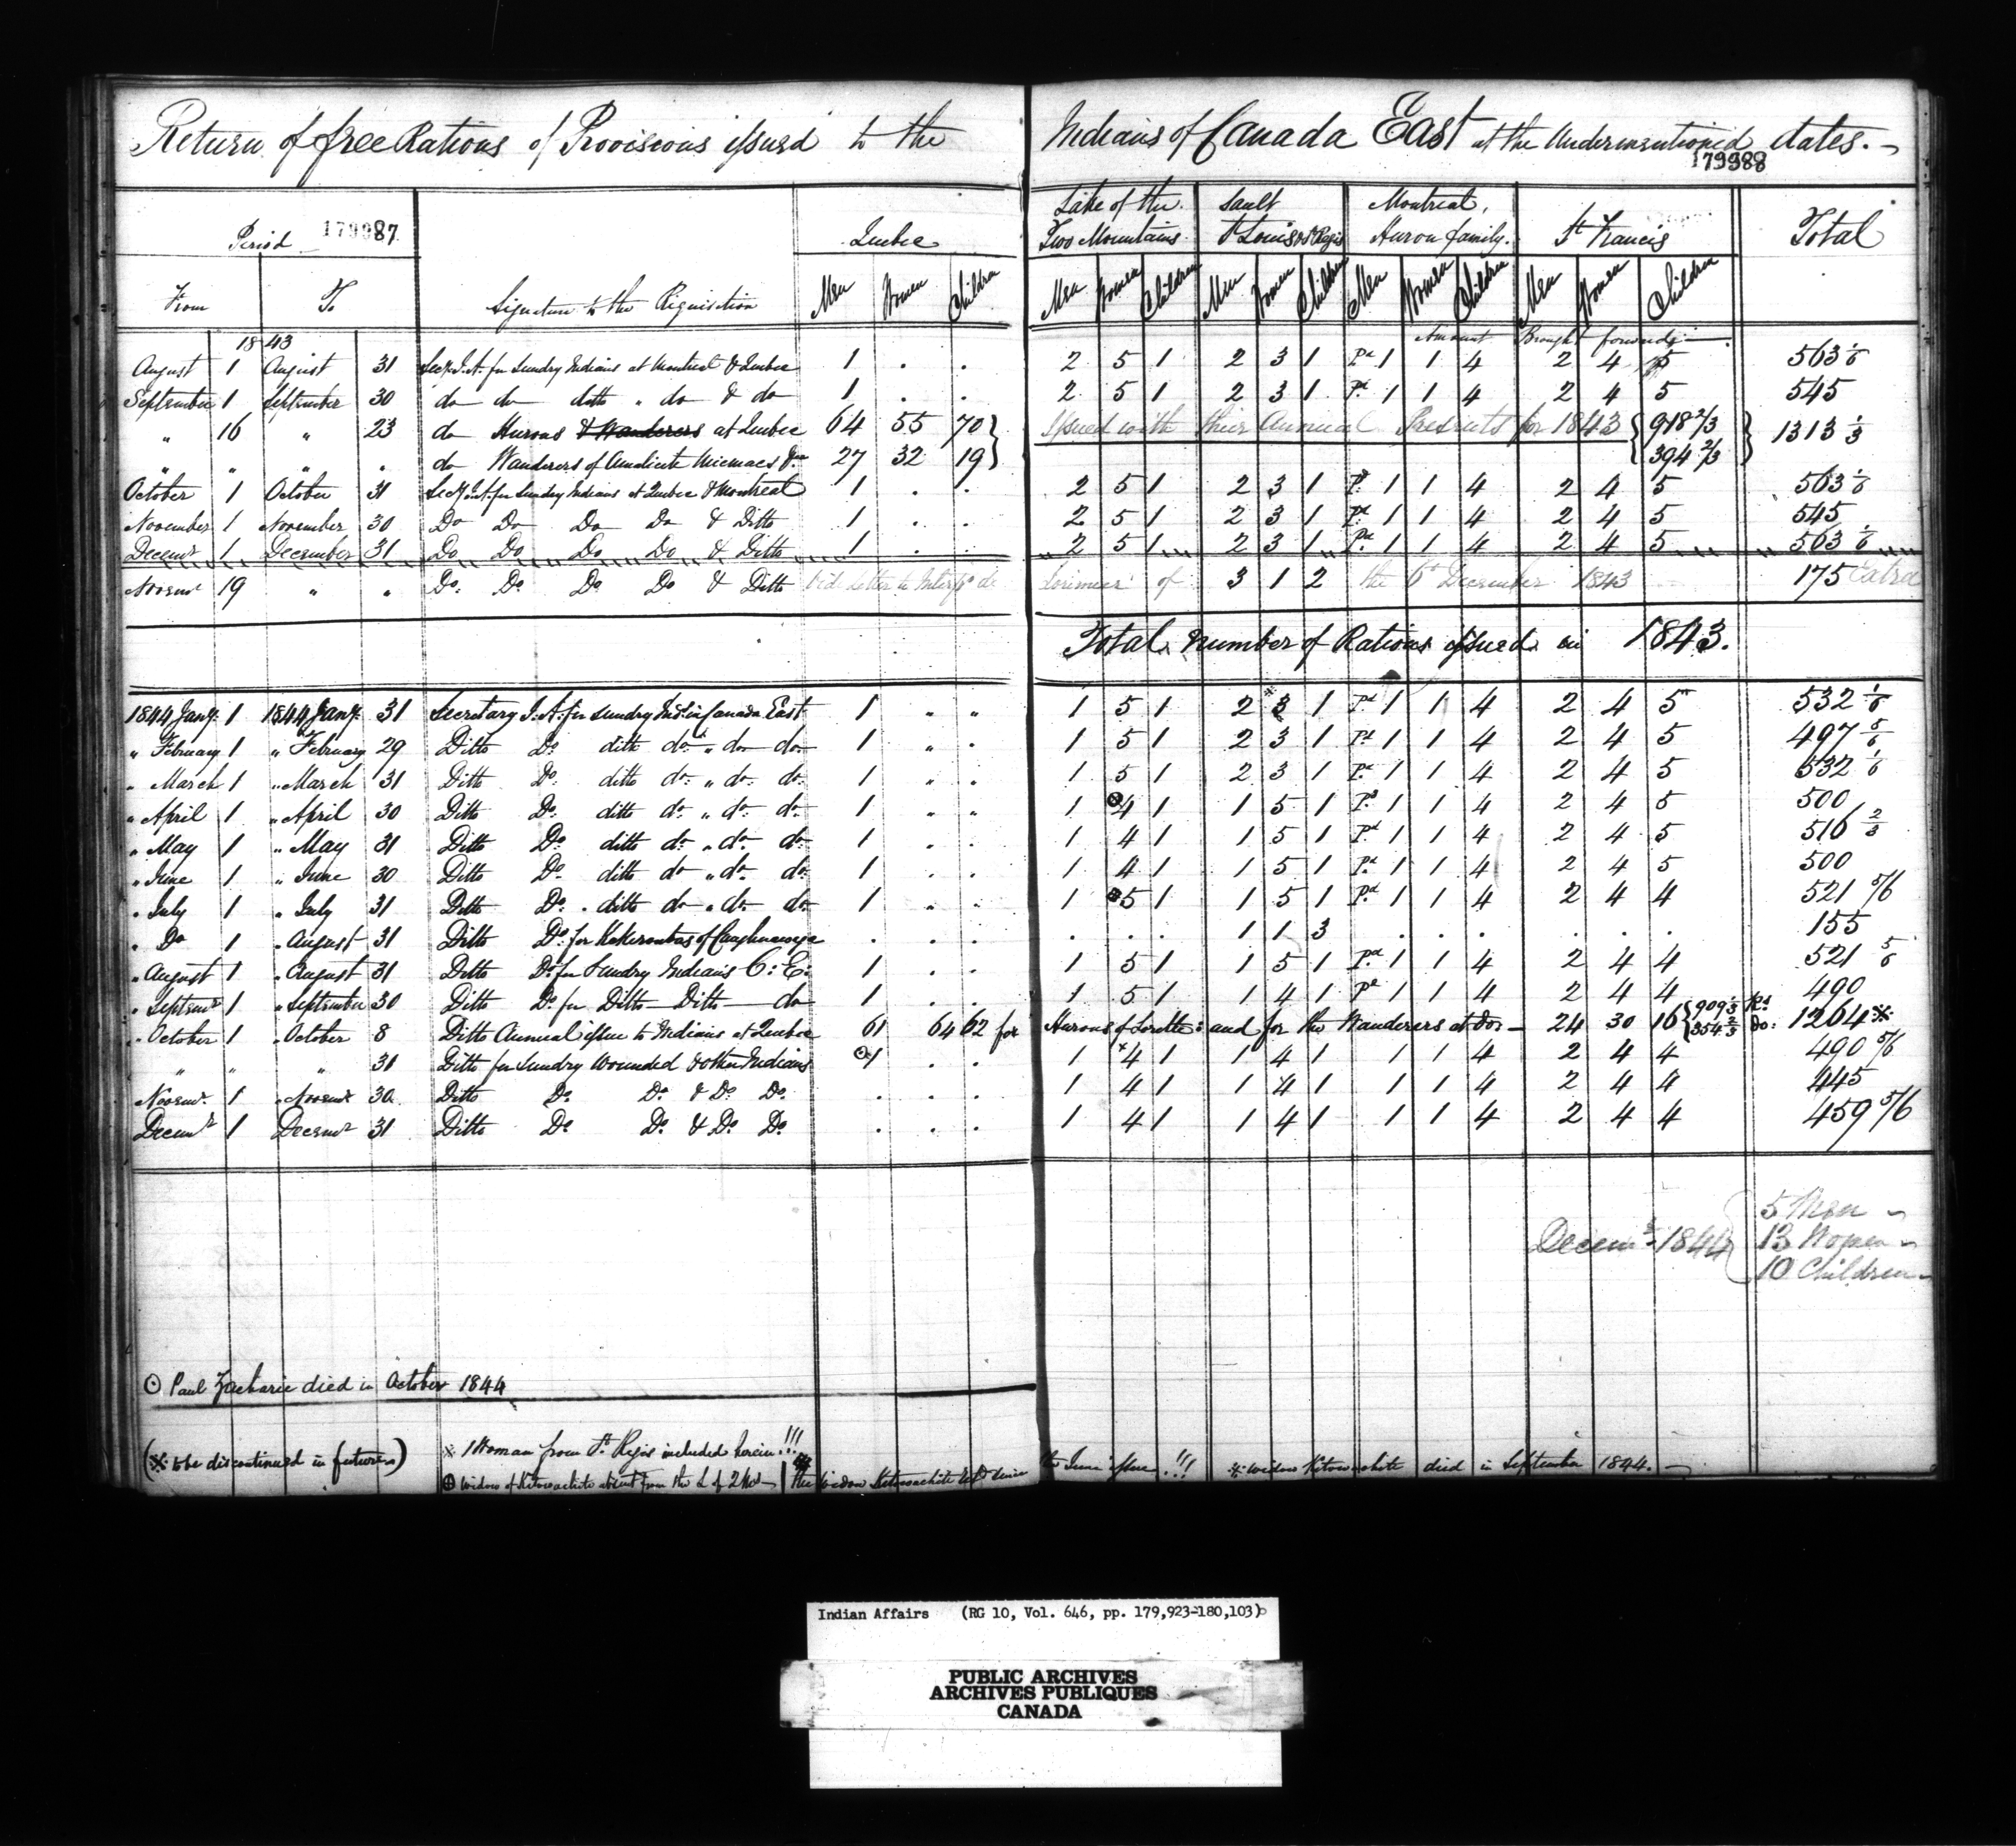 Return of free Rations of Provisions issued to the Indians of Canada East at the Undermentioned dates.
179988
Period 179987 Quebec Lake of the Two Mountains Sault St Louis & St Regis Montreal, Huron family. St Francis Total
From To Signature to the Requisition Men Women Children Men Women Children Men Women Children Men Women Children Men Women Children
1843 Amount Brought forward
August 1 August 31 Secy I.A. for Sundry Indians at Montreal & Quebec 1 . . 2 5 1 2 3 1 Pd 1 1 4 2 4 5 563 1/6
September 1 September 30 do do ditto " do & do 1 . . 2 5 1 2 3 1 Pd 1 1 4 2 4 5 545
" 16 " 23 do Hurons & Wanderers at Quebec 64 55 70 } Issued with their Annual Presents for 1843 { 918 2/3 } 1313 1/3
" " " " do Wanderers of Amalicite Micmacs &c 27 32 19 } { 394 2/3 }
October 1 October 31 Secy I.A. for Sundry Indians at Quebec & Montreal 1 . . 2 5 1 2 3 1 Pd 1 1 4 2 4 5 563 1/6
November 1 November 30 Do Do Do Do & Ditto 1 . . 2 5 1 2 3 1 Pd 1 1 4 2 4 5 545
Decemr 1 December 31 Do Do Do Do & Ditto 1 . . 2 5 1 2 3 1 Pd 1 1 4 2 4 5 563 1/6
Novemr 19 " " Do Do Do Do & Ditto Vid Letter to Interpr de Lorimier of 3 1 2 the 6t December 1843 175 Extra
Total number of Rations issued in 1843.
1844 Jany. 1 1844 Jany. 31 Secretary I.A. for Sundry Inds in Canada East 1 " " 1 5 1 2 3 1 Pd 1 1 4 2 4 5 532 1/6
" February 1 " February 29 Ditto Do ditto do " do do 1 " . 1 5 1 2 3 1 Pd 1 1 4 2 4 5 497 5/6
" March 1 " March 31 Ditto Do ditto do " do do 1 " " 1 5 1 2 3 1 Pd 1 1 4 2 4 5 532 1/6
" April 1 " April 30 Ditto Do ditto do " do do 1 " " 1 4 1 1 5 1 Pd 1 1 4 2 4 5 500
" May 1 " May 31 Ditto Do ditto do " do do 1 . . 1 4 1 1 5 1 Pd 1 1 4 2 4 5 516 2/3
" June 1 " June 30 Ditto Do ditto do " do do 1 . . 1 4 1 1 5 1 Pd 1 1 4 2 4 5 500
" July 1 " July 31 Ditto Do ditto do " do do 1 " . 1 5 1 1 5 1 Pd 1 1 4 2 4 4 521 5/6
" Do 1 " August 31 Ditto Do for Kakerontas of Caughnawaga . . . . . . 1 1 3 . . . . . . 155
" August 1 " August 31 Ditto Do for Sundry Indians C: E: 1 . . 1 5 1 1 5 1 Pd 1 1 4 2 4 4 521 5/6
" Septemr 1 " September 30 Ditto Do for Ditto Ditto do 1 . . 1 5 1 1 4 1 Pd 1 1 4 2 4 4 490
" October 1 " October 8 Ditto Annual issue to Indians at Quebec 61 64 62 for Hurons of Lorette: and for the Wanderers at do: 24 30 16 { 909 1/3 Rs 354 2/3 do: 1264 ※
" " " 31 Ditto for Sundry Wounded & other Indians ⊙1 . . 1 4 1 1 4 1 1 1 4 2 4 4 490 5/6
Novemr. 1 " Novemr 30 Ditto Do Do & Do Do . . . 1 4 1 1 4 1 1 1 4 2 4 4 445
Decemr 1 Decemr 31 Ditto Do Do & Do Do . . . 1 4 1 1 4 1 1 1 4 2 4 4 459 5/6
Decemr 1844 { 5 Men
13 Women
10 Children
⊙ Paul Zacharie died in October 1844
(※ to be discontinued in future) ※ 1 Woman from St Regis included herein !!!
⊕ Widow of Kitowachite absent from the L of 2 Mns the Widow Kitowachite since the June issue !!! ※ Widow Kitowachite died in September 1844.
Indian Affairs (RG 10, Vol. 646, pp. 179,923-180,103)
PUBLIC ARCHIVES
ARCHIVES PUBLIQUES
CANADA